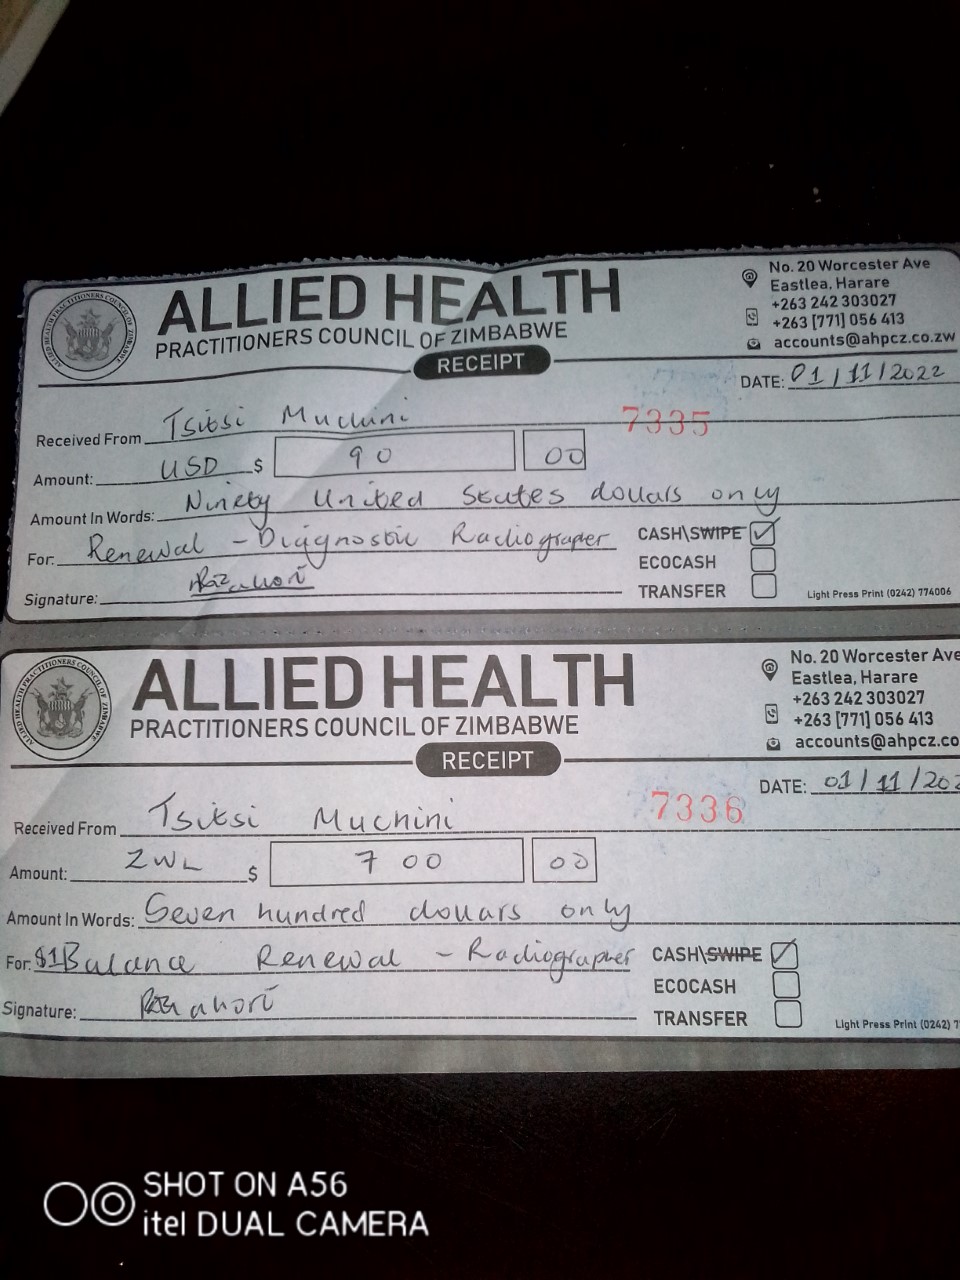 ALLIED HEALTH
PRACTITIONERS COUNCIL OF ZIMBABWE
RECEIPT
No. 20 Worcester Ave
Eastlea, Harare
+263 242 303027
+263 [771] 056 413
accounts@ahpcz.co.zw
DATE: 01/11/2022
7335
Received From Tsitsi Muchini
Amount: USD $ 90 00
Amount In Words: Ninety United States dollars only
For: Renewal - Diagnostic Radiographer
CASH\SWIPE
ECOCASH
TRANSFER
Signature:
Light Press Print (0242) 774006
ALLIED HEALTH
PRACTITIONERS COUNCIL OF ZIMBABWE
RECEIPT
No. 20 Worcester Ave
Eastlea, Harare
+263 242 303027
+263 [771] 056 413
accounts@ahpcz.co
DATE: 01/11/202
7336
Received From Tsitsi Muchini
Amount: ZWL $ 700 00
Amount In Words: Seven hundred dollars only
For: $1 Balance Renewal - Radiographer
CASH\SWIPE
ECOCASH
TRANSFER
Signature:
Light Press Print (0242) 7
SHOT ON A56
itel DUAL CAMERA